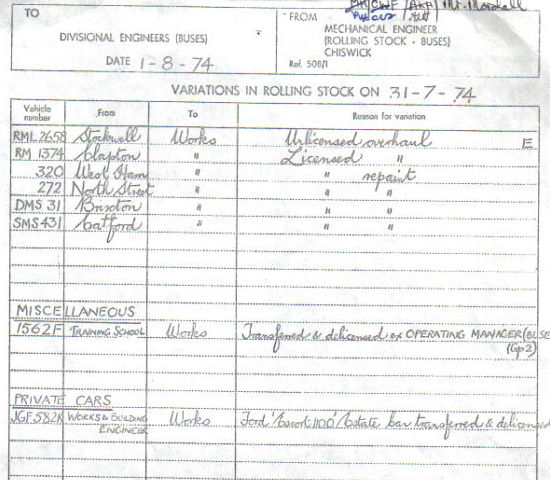 TO
FROM
Mr. Marshall
DIVISIONAL ENGINEERS (BUSES)
MECHANICAL ENGINEER
(ROLLING STOCK - BUSES)
CHISWICK
DATE 1-8-74
Ref. 508/1
VARIATIONS IN ROLLING STOCK ON 31-7-74
Vehicle number From To Reason for variation
RML 2658 Stockwell Works Unlicensed overhaul E
RM 1374 Clapton " Licensed "
320 West Ham " " repaint
272 North Street " " "
DMS 31 Brixton " " "
SMS 431 Catford " " "
MISCELLANEOUS
1562F TRAINING SCHOOL Works Transferred & delicensed ex OPERATING MANAGER (BUSES
(Gp 2)
PRIVATE CARS
JGF 582K WORKS & BUILDING ENGINEER Works Ford 'Escort 1100' Estate car transferred & delicensed